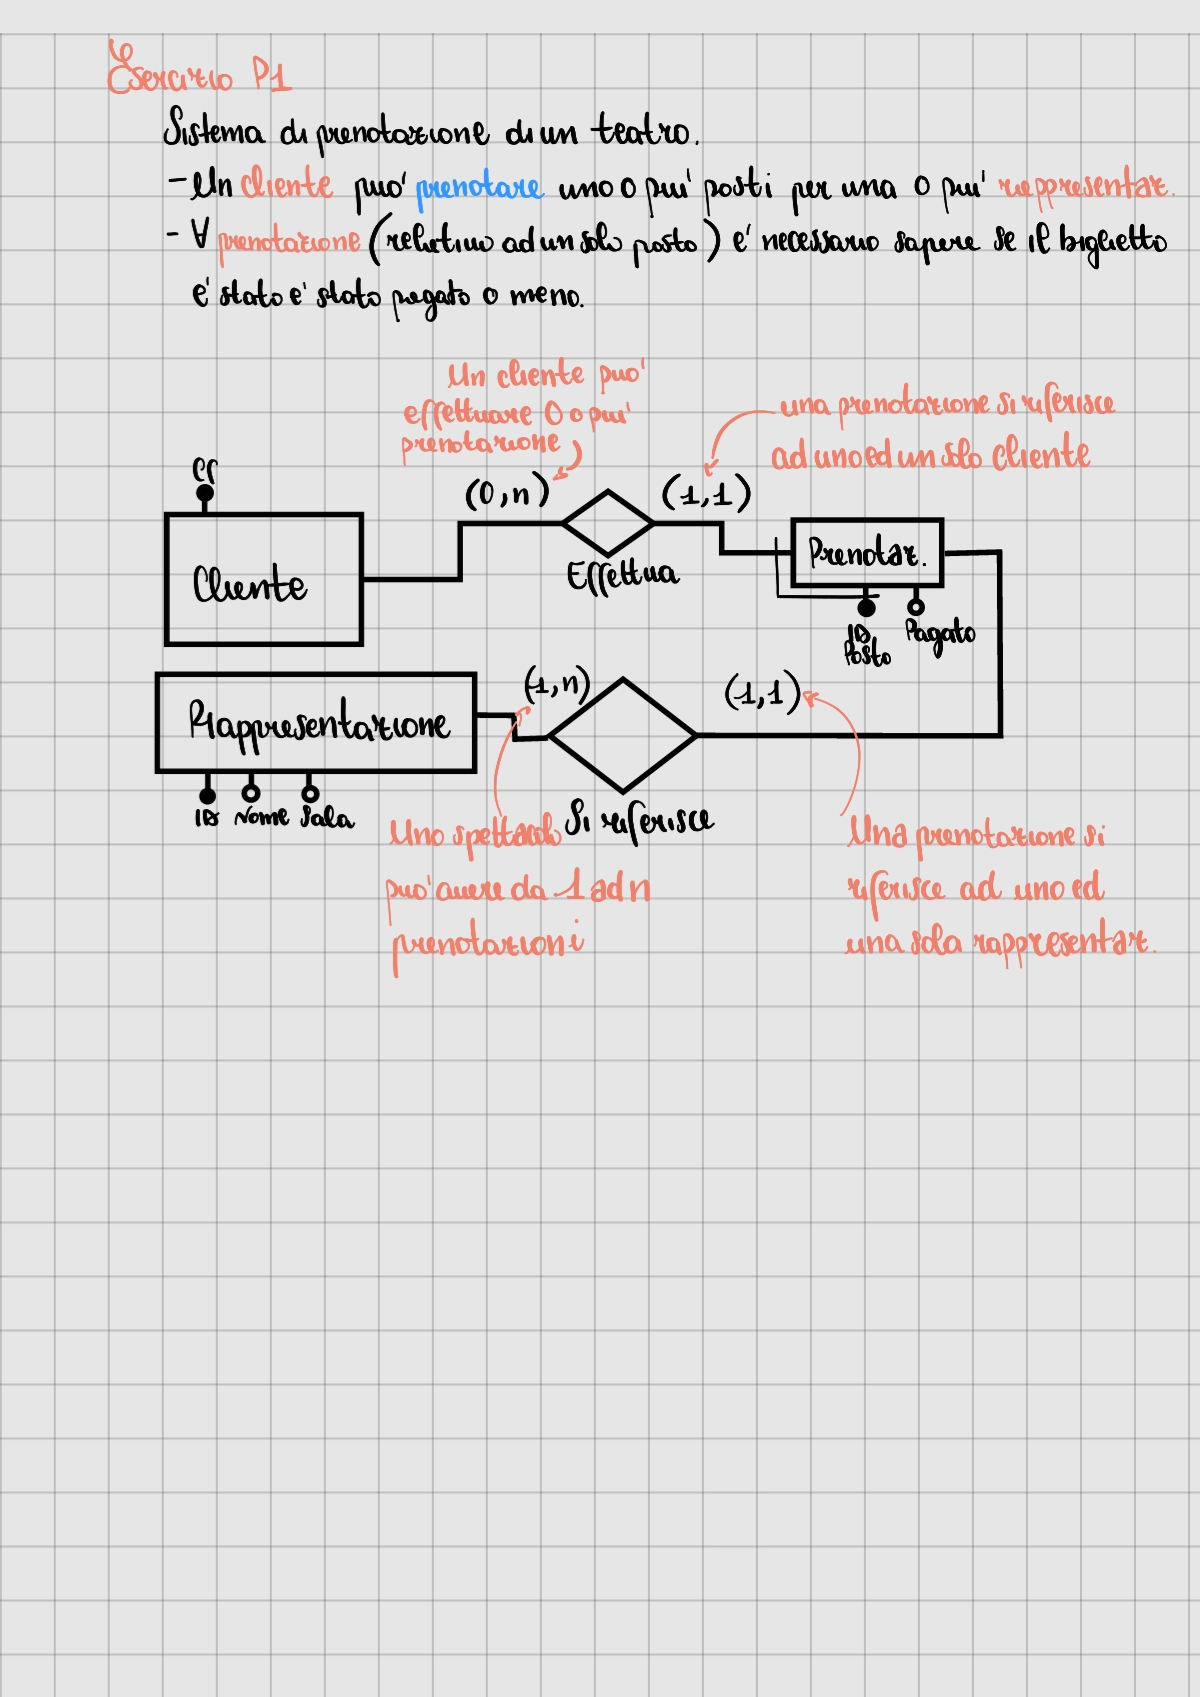 Esercizio P1
Sistema di prenotazione di un teatro.
- Un cliente puo' prenotare uno o piu' posti per una o piu' rappresentaz.
- ∀ prenotazione (relativo ad un solo posto) e' necessario sapere se il biglietto
e' stato e' stato pagato o meno.
Un cliente puo'
effettuare 0 o piu'
prenotazione
una prenotazione si riferisce
ad uno ed un solo cliente
CF
(0,n)
(1,1)
Cliente
Effettua
Prenotaz.
ID
Posto
Pagato
Rappresentazione
(1,n)
(1,1)
ID Nome Sala
Si riferisce
Uno spettacolo
puo' avere da 1 ad n
prenotazioni
Una prenotazione si
riferisce ad uno ed
una sola rappresentaz.